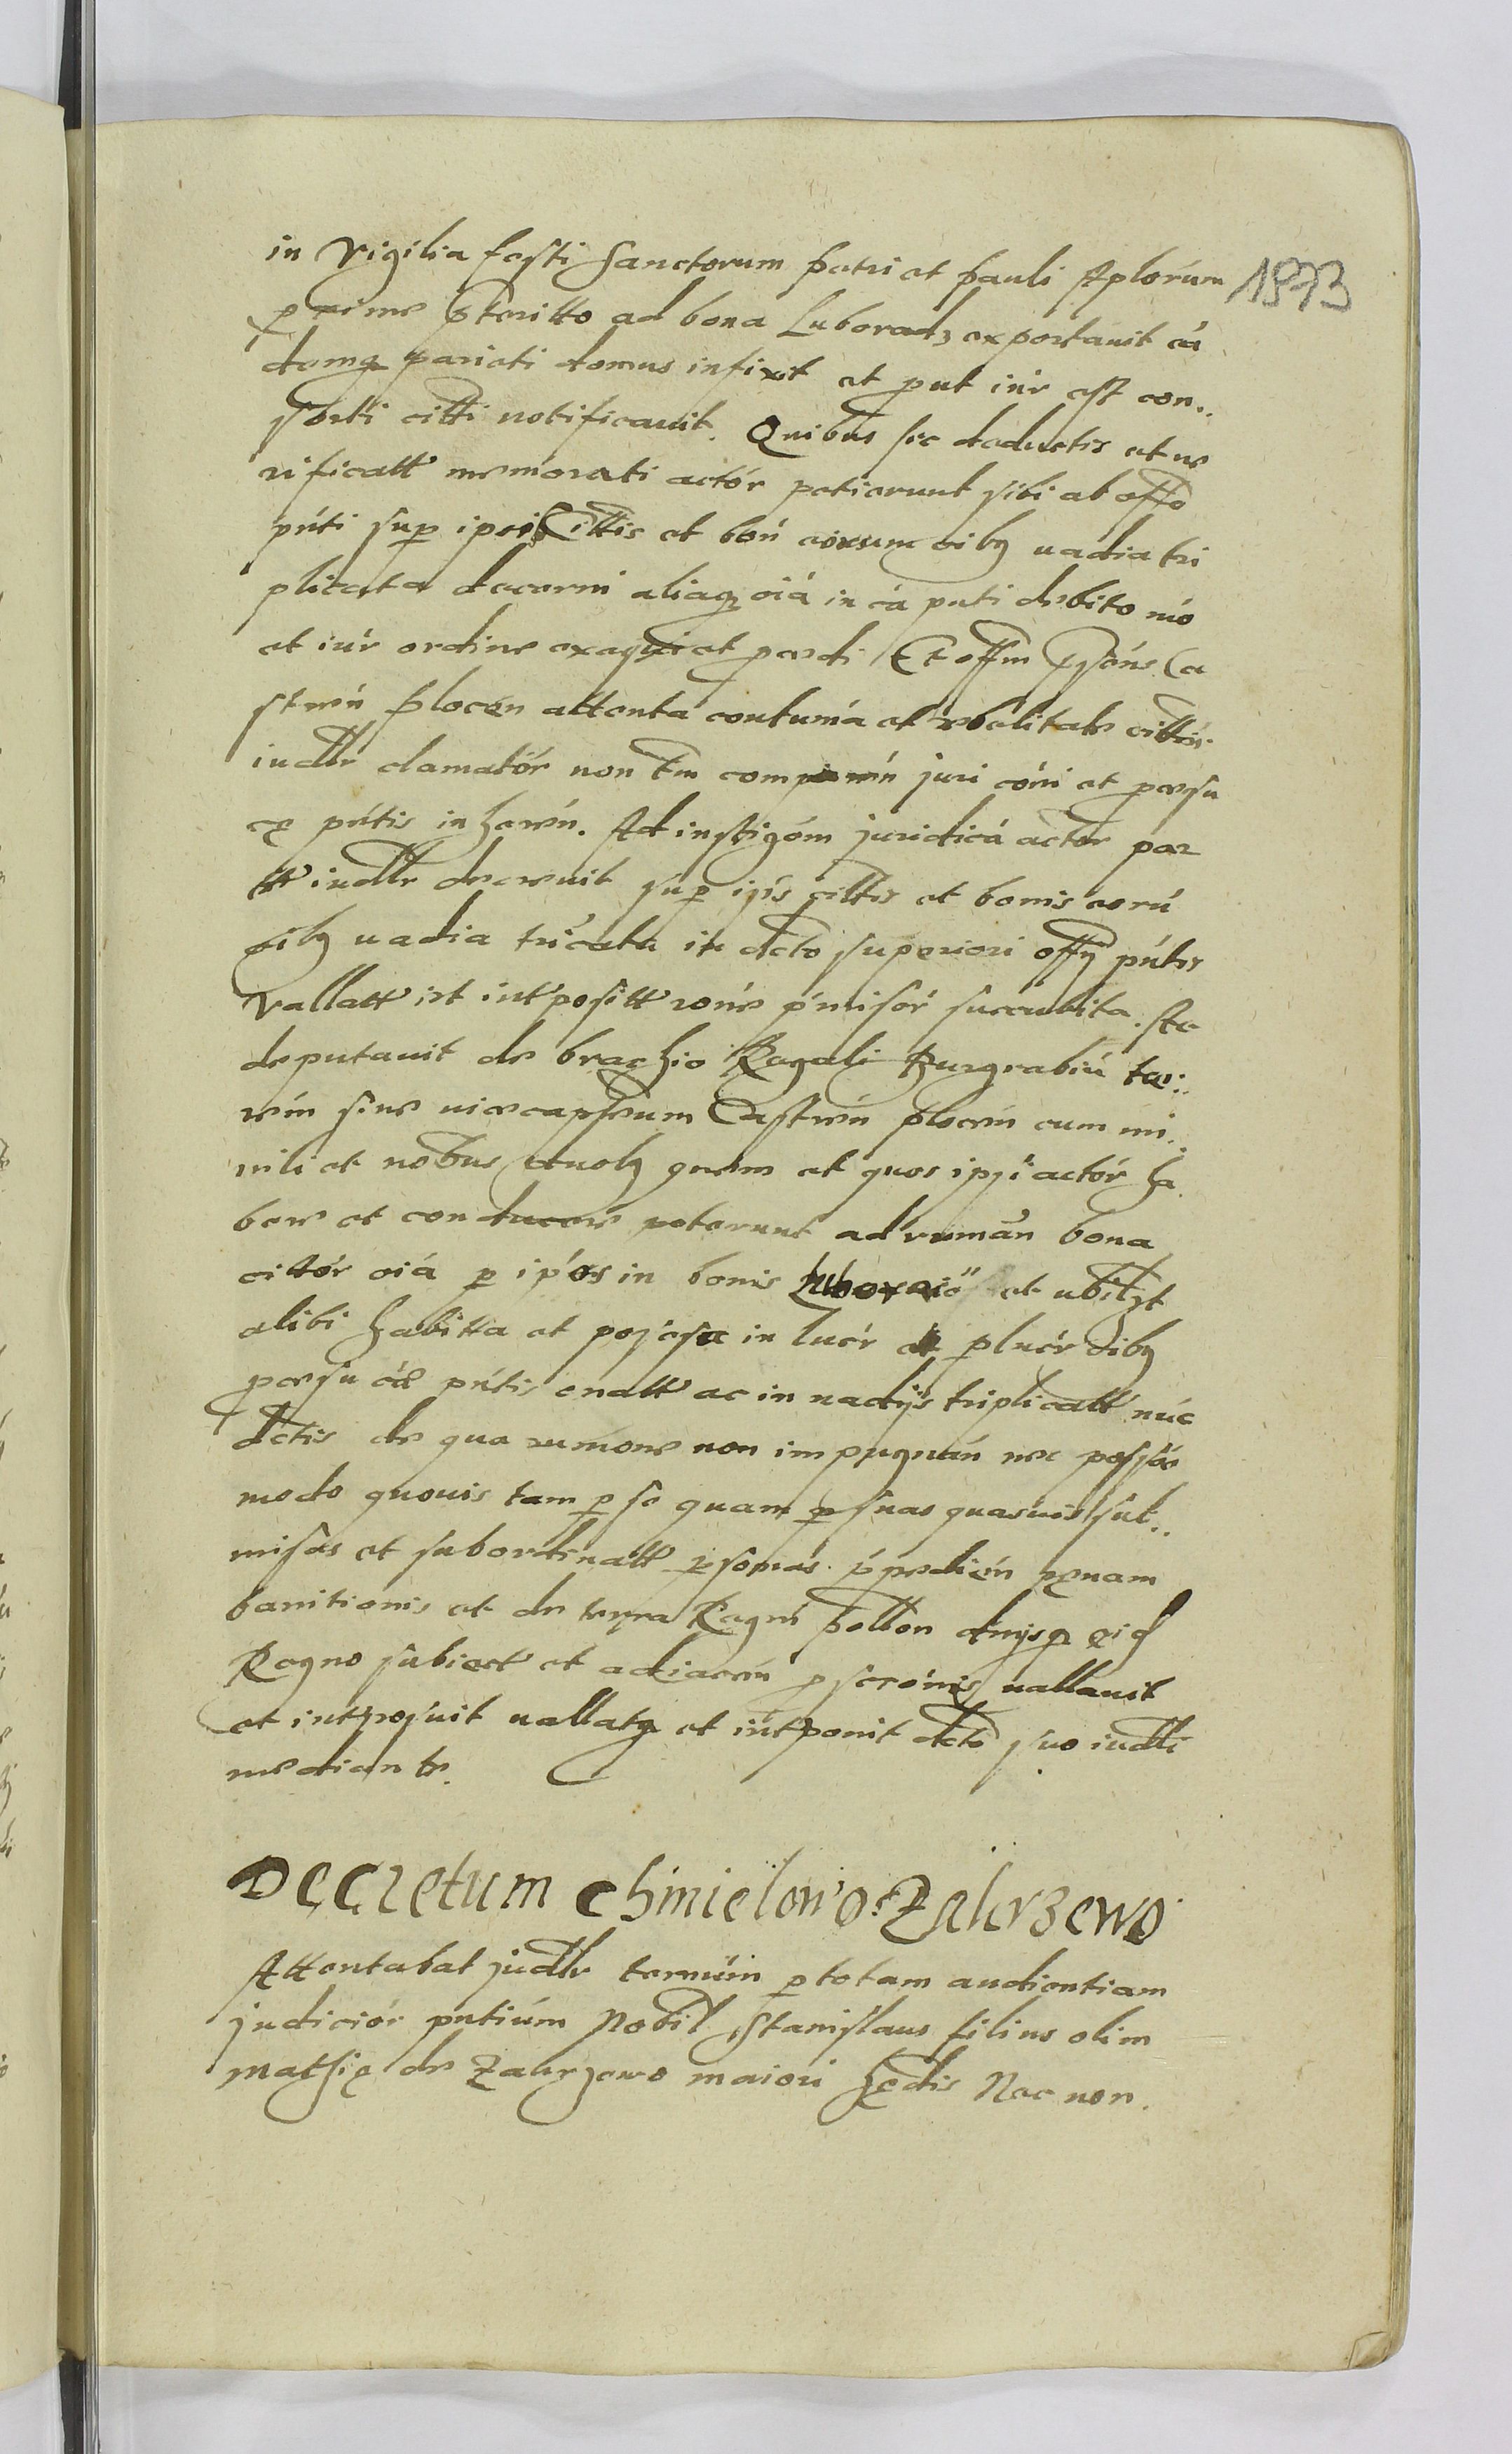 in Vigilia festi Sanctorum petri et pauli Aplorum
1873
pxime pteritto ad bona Luboradz exportauit ea
demq parieti domus infixit et put iur est con..
sorti citti notificauit. Quibus sic deductis et ve
rificatt memorati actor petierunt sibi ab offo
pnti sup ipsis Cittis et bon eorum oibq vadia tri
plicata decerni aliaq oia in ca pnti debito mo
et iur ordine exequi et predi Et offm Capitan Ca
stren plocen attenta contuma et rebelitate cittor
iudtr clamator non tm comparen juri coni et
pntis inheren. Ad instigom juridica actor par
tt iudtr decreuit sup ipis cittis et bonis eoru
oibq vadia tricata in dcto superiori offy pntis
vallatt et intposittt rone pmisor succubita. Ac
deputauit de brachio Regali Burgrabiu ter..
ren siue vicecapseum Castren plocen cum mi..
nili et nobus duobq quem et quos ipsi actor ha
bere et conducere poterunt ad ruman bona
citor oia p ipos in bonis et ubilzt
alibi habitta et possessa in lucr et plucr oibq
pntis enatt ac in vadijs triplicatt nuc
dctis de qua rumone non impugnan nec
modo quouis tam p se quam p suas quasuis sub..
misas et subordinatt psonas ppedien penam
banitionis et de terra Regni pollon dnijsq eid
Regno subiect et adiacen pscronis vallauit
et intposuit vallatq et intponit dcto suo iudtli
mediante.
Decretum Chmielowo Zakrzewo
Attentabat judtr termin p totam audientiam
judicior pntium Nobil Stanislaus filius olim
Mathię de Zakrzewo maiori hędis Nec non.